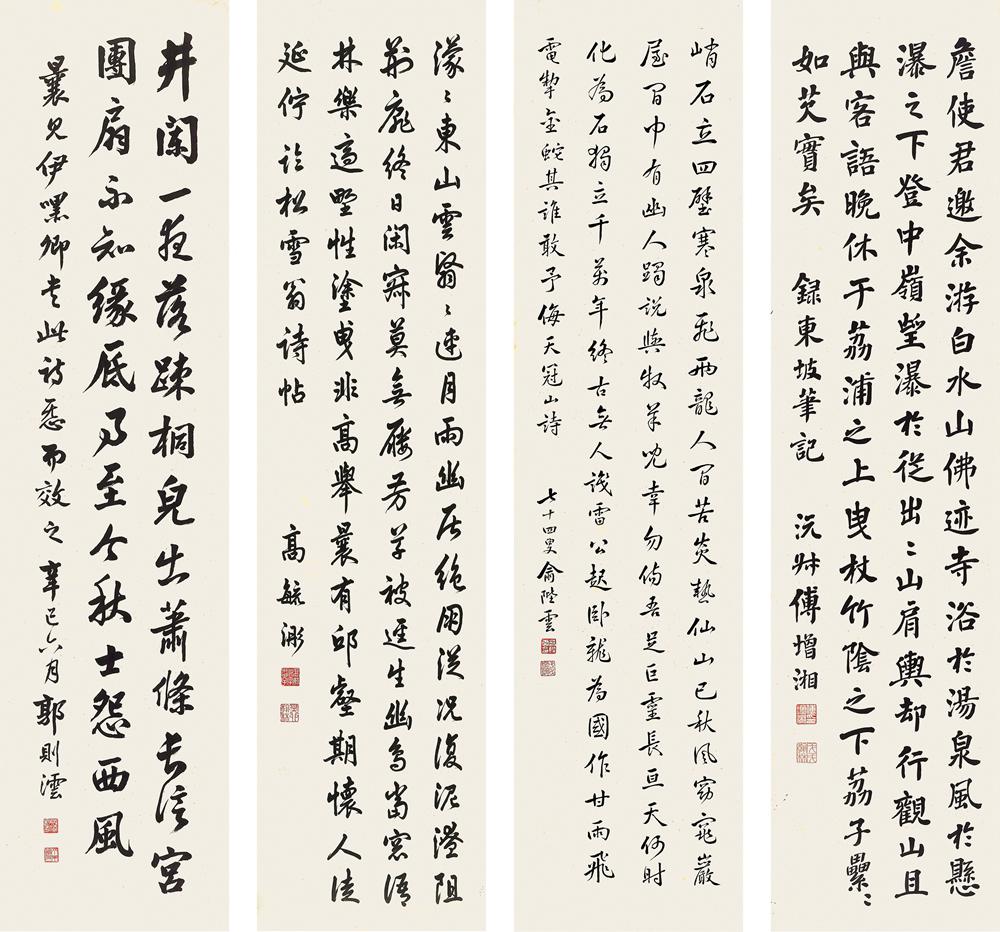 詹使君邀余游白水山佛迹寺浴於湯泉風於懸
瀑之下登中嶺望瀑於從出〻山肩輿却行觀山且
與客語晚休于荔浦之上曳杖竹陰之下荔子纍〻
如芡實矣 録東坡筆記 沅叔傅增湘
峭石立四壁寒泉飛兩龍人間苦炎熱仙山已秋風窈窕巖
屋間中有幽人躅說與牧羊兒幸勿傷吾足巨靈長亘天何時
化為石獨立千萬年終古無人識雷公起卧龍為國作甘雨飛
電掣金蛇其誰敢予侮天冠山詩 七十四叟俞陛雲
濛〻東山雲翳〻連月雨幽居絶朋從況復泥阻
荊扉終日閑寂莫無屨芳草被逕生幽鳥當窓語
林樂適野性塗曳非高舉曩有邱壑期懷人徒
延佇 臨松雪翁詩帖 高毓浵
井闌一夜落踈桐見出蕭條長信宮
團扇不知緣底事至今秋士怨西風
曩見伊墨卿書此詩而效之 辛巳六月 郭則澐